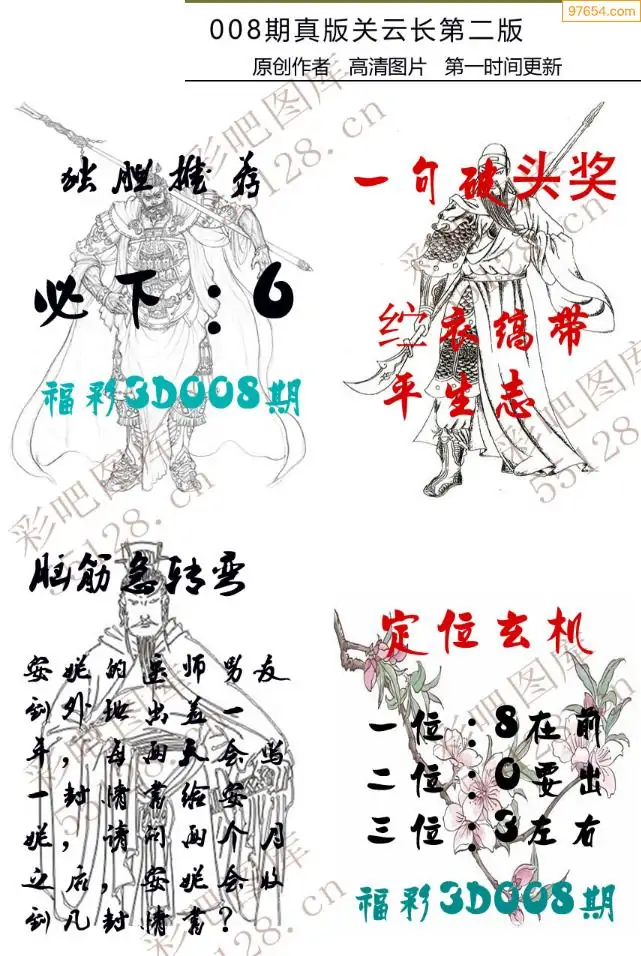 97654.com
008期真版关云长第二版
原创作者 高清图片 第一时间更新
独胆推荐
必下:6
福彩3D008期
一句破头奖
纻衣缟带
平生志
脑筋急转弯
安妮的医师男友
到外地出差一
年,每两天会写
一封情书给安
妮,请问两个月
之后,安妮会收
到几封情书?
定位玄机
一位:8在前
二位:0要出
三位:3左右
福彩3D008期
彩吧图库
55128.cn